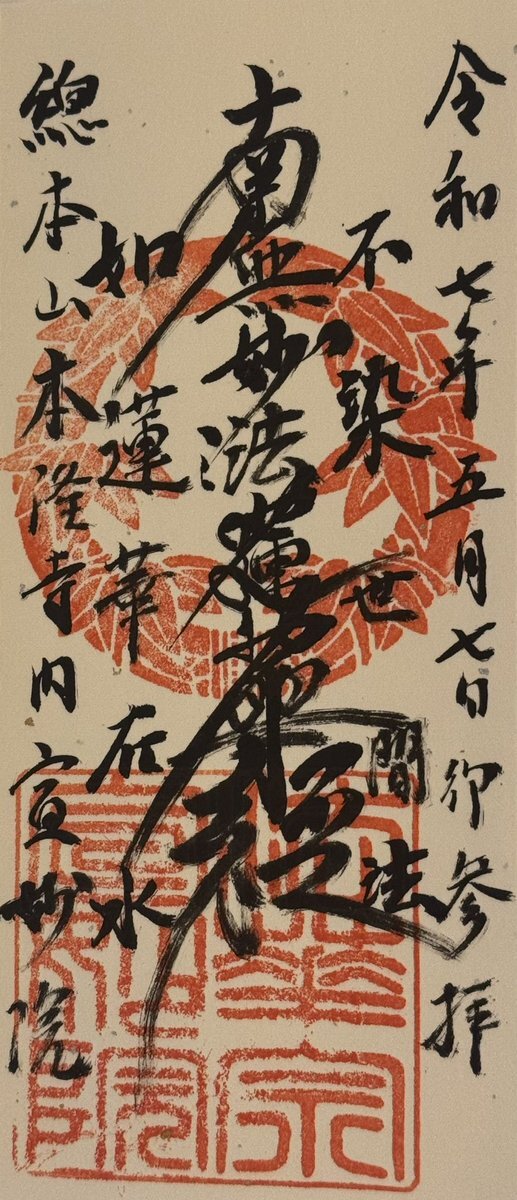 令和七年五月七日御参拝
不染世間法
南無妙法蓮華経
如蓮華在水
總本山本隆寺内宣妙院